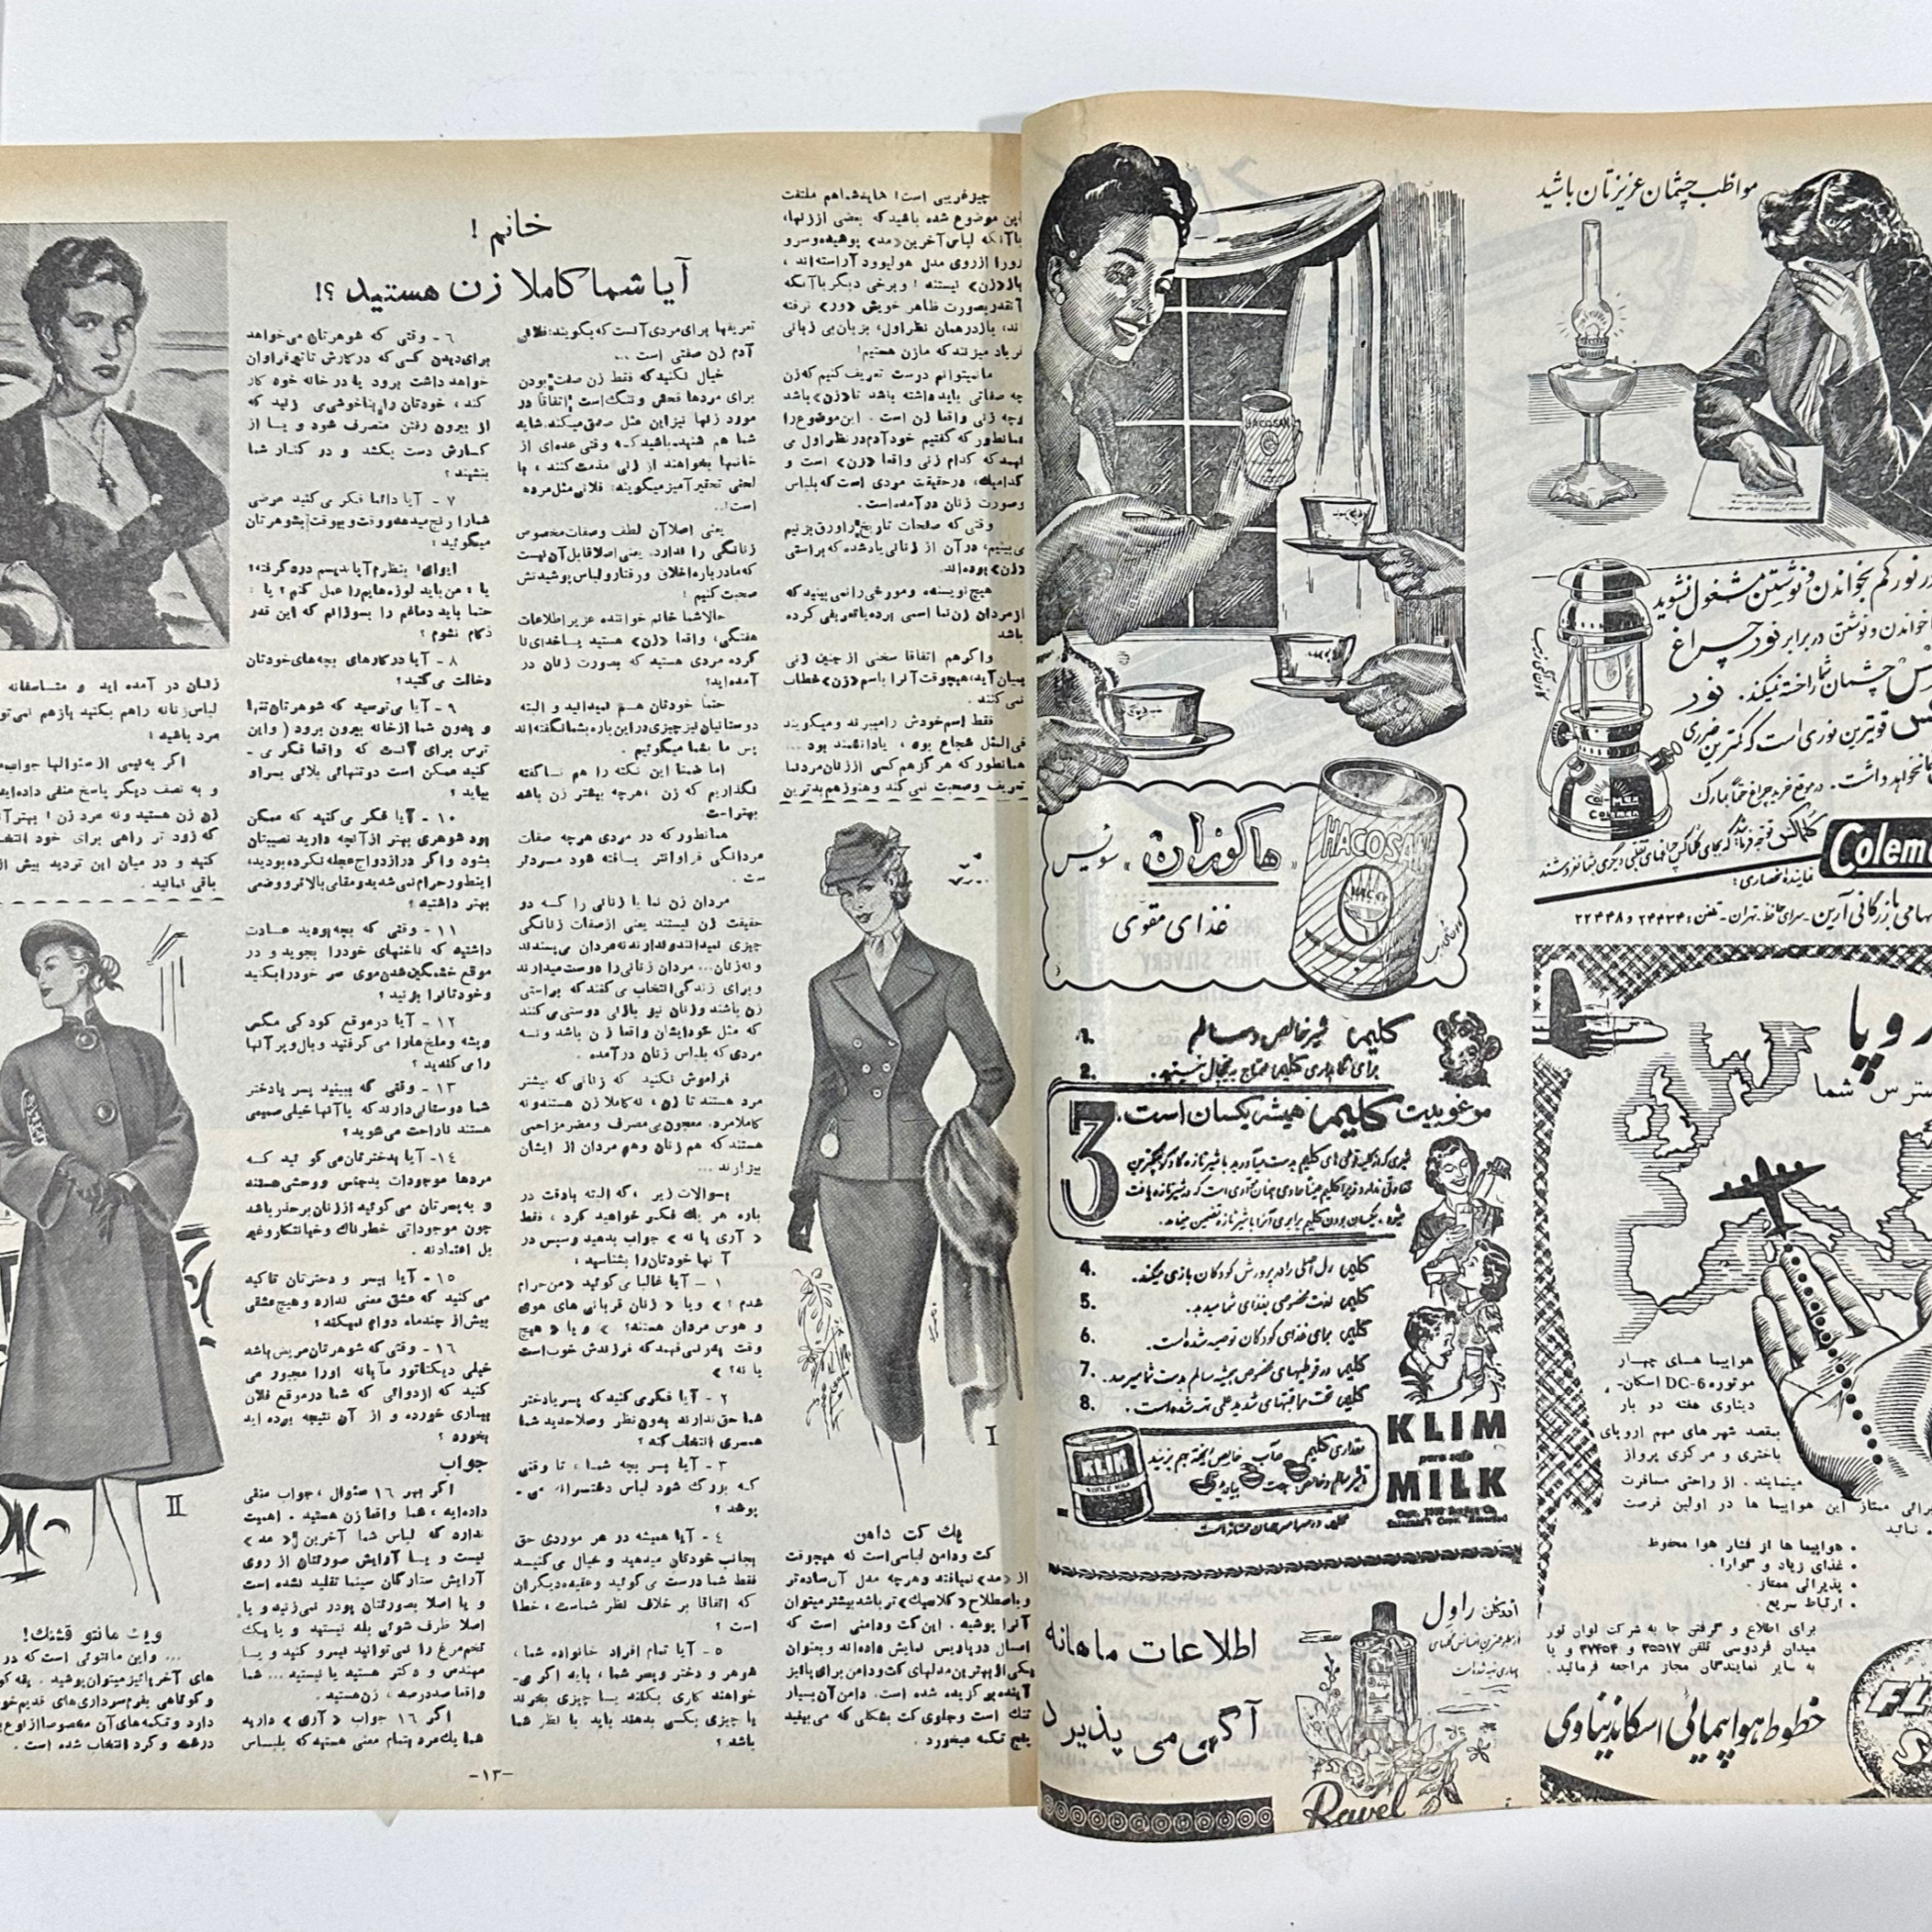 خانم !
آیا شما کاملا زن هستید ؟!
چیز غریبی است! شاید شما هم ملتفت
این موضوع شده باشید که بعضی از زنها،
با آنکه لباس آخرین «مد» پوشیده و سر و
رو را از روی مدل هولیوود آراسته اند ،
باز «زن» نیستند ! و برخی دیگر با آنکه
آنقدر بصورت ظاهر خویش «ور» نرفته
اند، باز در همان نظر اول، بزبان بی زبانی
فریاد میزنند که ما زن هستیم!
ما نمیتوانیم درست تعریف کنیم که زن
چه صفاتی باید داشته باشد تا «زن» باشد
وچه زنی واقعا زن است . این موضوع را
همانطور که گفتیم خود آدم در نظر اول می
فهمد که کدام زنی واقعا «زن» است و
کدامیك، در حقیقت مردی است که بلباس
وصورت زنان در آمده است .
وقتی که صفحات تاریخ را ورق بزنیم
می بینیم، در آن از زنانی یاد شده که براستی
«زن» بوده اند.
هیچ نویسنده و مورخی را نمی بینید که
از مردان زن نما اسمی برده یا تعریفی کرده
باشد
واگر هم اتفاقا سخنی از چنین زنی
بمیان آید، هیچوقت آنرا باسم «زن» خطاب
نمی کنند .
فقط اسم خودش را میبرند و میگویند
فی المثل شجاع بود ، یا دانشمند بود ...
همانطور که هرگز هم کسی از زنان مردنما
تعریف وصحبت نمی کند و هنوز هم بدترین
I
یك کت دامن
کت ودامن لباسی است که هیچوقت
از «مد» نمیافتد وهرچه مدل آن ساده تر
و باصطلاح «کلاسیك» تر باشد بیشتر میتوان
آنرا پوشید . این کت و دامنی است که
امسال در پاریس نمایش داده اند و بعنوان
یکی از بهترین مدلهای کت و دامن برای پائیز
آینده برگزیده شده است. دامن آن بسیار
تنك است وجلوی کت بشکلی که می بینید
پنج تکمه میخورد .
تعریفها برای مردی آنست که بگویند: فلانی
آدم زن صفتی است ...
خیال نکنید که فقط زن صفت بودن
برای مردها فحش و ننگ است اتفاقا در
مورد زنها نیز این مثل صدق میکند. شاید
شما هم شنیده باشید که وقتی عده ای از
خانمها بخواهند از زنی مذمت کنند ، با
لحنی تحقیر آمیز میگویند: فلانی مثل مرده
است!..
یعنی اصلا آن لطف وصفات مخصوص
زنانگی را ندارد. یعنی اصلا قابل آن نیست
که ما درباره اخلاق و رفتار و لباس پوشیدنش
صحبت کنیم !
حالا شما خانم خواننده عزیز اطلاعات
هفتگی، واقعا «زن» هستید یا خدای نا
کرده مردی هستید که بصورت زنان در
آمده اید؟
حتما خودتان هم نمیدانید و البته
دوستانتان نیز چیزی در این باره بشما نگفته اند
پس ما بشما میگوئیم .
اما ضمنا این نکته را هم ناگفته
نگذاریم که زن ، هرچه بیشتر زن باشد
بهتر است .
همانطور که در مردی هرچه صفات
مردانگی فراوانتر یافته شود مردتر
ست .
مردان زن نما یا زنانی را که در
حقیقت زن نیستند یعنی از صفات زنانگی
چیزی نمیدانند و ندارند نه مردان می پسندند
و نه زنان... مردان زنانی را دوست میدارند
و برای زندگی انتخاب می کنند که براستی
زن باشند و زنان نیز با زنانی دوستی می کنند
که مثل خودایشان واقعا زن باشد و نه
مردی که بلباس زنان در آمده .
فراموش نکنید که زنانی که بیشتر
مرد هستند تا زن ، نه کاملا زن هستند و نه
کاملا مرد. معجون بی مصرف و مضر مزاحمی
هستند که هم زنان و هم مردان از ایشان
بیزارند ...
بسوالات زیر ، که البته بادقت در
باره هر یك فکر خواهید کرد ، فقط
« آری یا نه » جواب بدهید و سپس در
آنها خودتان را بشناسید :
۱ - آیا غالبا می گوئید «من حرام
شدم !» ویا « زنان قربانی های هوی
و هوس مردان هستند؟ » و یا « هیچ
وقت پدر نمی فهمد که فرزندش خوب است
یا نه؟ »
۲ - آیا فکر می کنید که پسر یا دختر
شما حق ندارند بدون نظر و صلاحدید شما
همسری انتخاب کند ؟
۳ - آیا پسر بچه شما ، تا وقتی
که بزرگ شود لباس دخترانه می -
پوشد ؟
٤ - آیا همیشه در هر موردی حق
بجانب خودتان میدهید و خیال می کنید
فقط شما درست می گوئید و عقیده دیگران
که اتفاقا بر خلاف نظر شماست ، خطا
است ؟
۵ - آیا تمام افراد خانواده شما ،
شوهر و دختر و پسر شما ، باید اگر می-
خواهند کاری بکنند یا چیزی بخرند
یا چیزی بکسی بدهند باید با نظر شما
باشد ؟
٦ - وقتی که شوهرتان می خواهد
برای دیدن کسی که در کارش تاثیر فراوان
خواهد داشت برود یا در خانه خود کار
کند ، خودتان را بناخوشی می زنید که
از بیرون رفتن منصرف شود و یا از
کارش دست بکشد و در کنار شما
بنشیند ؟
۷ - آیا دائما فکر می کنید مرضی
شما را رنج میدهد و وقت و بیوقت بشوهرتان
میگوئید :
ایوای! بنظرم آپاندیسم درد گرفته!
یا : من باید لوزه هایم را عمل کنم ؟ یا :
حتما باید دماغم را بسوزانم که این قدر
زکام نشوم ؟
۸ - آیا در کارهای بچه های خودتان
دخالت می کنید ؟
۹ - آیا می ترسید که شوهرتان تنها
و بدون شما از خانه بیرون برود ( واین
ترس برای آنست که واقعا فکر می -
کنید ممکن است در تنهائی بلائی بسر او
بیاید ؟
۱۰ - آیا فکر می کنید که ممکن
بود شوهری بهتر از آنچه دارید نصیبتان
بشود و اگر در ازدواج عجله نکرده بودید،
اینطور حرام نمی شدید و مقامی بالاتر و وضعی
بهتر داشتید ؟
۱۱ - وقتی که بچه بودید عادت
داشتید که ناخنهای خود را بجوید و در
موقع خشمگین شدن موی سر خود را بکنید
و خودتانرا بزنید ؟
۱۲ - آیا در موقع کودکی مگس
وپشه و ملخ ها را می گرفتید و بال و پر آنها
را می کندید ؟
۱۳ - وقتی که ببینید پسر یا دختر
شما دوستانی دارند که با آنها خیلی صمیمی
هستند ناراحت می شوید ؟
۱٤ - آیا بدخترتان می گوئید که
مردها موجودات بدجنس و وحشی هستند
و به پسرتان می گوئید از زنان بر حذر باشد
چون موجوداتی خطرناك وخیانتکار و غیر
قابل اعتمادند .
۱۵ - آیا بپسر و دخترتان تاکید
می کنید که عشق معنی ندارد و هیچ عشقی
بیش از چند ماه دوام نمیکند ؟
۱٦ - وقتی که شوهرتان مریض باشد
خیلی دیکتاتور مآبانه او را مجبور می
کنید که از دوائی که شما در موقع فلان
بیماری خورده و از آن نتیجه برده اید
بخورد ؟
جواب
اگر بهر ۱٦ سئوال ، جواب منفی
داده اید ، شما واقعا زن هستید . اهمیت
ندارد که لباس شما آخرین « مد »
نیست و یا آرایش صورتتان از روی
آرایش ستارگان سینما تقلید نشده است
و یا اصلا بصورتتان پودر نمی زنید و یا
اصلا ظرف شوئی بلد نیستید و یا یك
تخم مرغ را نمی توانید نیمرو کنید و یا
مهندس و دکتر هستید یا نیستید ... شما
واقعا صد درصد ، زن هستید .
اگر ۱٦ جواب « آری » دارید
شما یك مرد بتمام معنی هستید که بلباس
زنان در آمده اید و متاسفانه
لباس زنانه را هم بکنید باز هم نمی تو
مرد باشید !
اگر به نیمی از سئوالها جواب
و به نصف دیگر پاسخ منفی داده اید
زن زن هستید و نه مرد مرد ! بهتر آ
که زود تر راهی برای خود انتخا
کنید و در میان این تردید بیش از
باقی نمانید .
II
ویك مانتو قشنك!
... و این مانتوئی است که در
های آخر پائیز میتوان پوشید . یقه کو
و کوتاهی بفرم سرداری های قدیم خو
دارد و تکمه های آن مخصوصا از نوع
درشت و گرد انتخاب شده است .
-۱۳-
HACOSAN
«هاکوزان» سویس
غذای مقوی
HACOSAN
HACO
1. کلیم شیر خالص و سالم
2. برای نگاهداری کلیم محتاج به یخچال نیستید.
3 مرغوبیت کلیم همیشه یکسان است.
4. کلیم رل اصلی را در پرورش کودکان بازی میکند.
5. کلیم لذت مخصوصی بغذای شما میدهد.
6. کلیم برای غذای کودکان توصیه شده است.
7. کلیم در قوطیهای مخصوص همیشه سالم بدست شما میرسد.
8. کلیم تحت مراقبتهای شدید علمی تهیه شده است.
KLIM
KLIM
pure safe
MILK
کلیم در سراسر جهان ممتاز است
اطلاعات ماهانه
آگهی می پذیرد
ادوکلن راول
Ravel
مواظب چشمان عزیزتان باشید
در نور کم بخواندن و نوشتن مشغول نشوید
خواندن و نوشتن در برابر نور چراغ
چشمان شما را خسته نمیکند. نور
قویترین نوری است که کمترین ضرری
نخواهد داشت. در موقع خرید چراغ حتما بمارك
Col-Max
Coleman
Colem
نماینده انحصاری:
سهامی بازرگانی آرین - سرای حافظ - تهران - تلفن: ۲۴۴۳۴ و ۲۲۴۴۸
روپا
سترس شما
هواپیما های چهار
موتوره DC-6 اسکان-
دیناوی هفته دو بار
بمقصد شهر های مهم اروپای
باختری و مرکزی پرواز
مینمایند . از راحتی مسافرت
رائی ممتاز این هواپیما ها در اولین فرصت
نمائید
• هواپیما ها از فشار هوا محفوظ
• غذای زیاد و گوارا .
• پذیرائی ممتاز .
• ارتباط سریع .
برای اطلاع و گرفتن جا به شرکت لوان تور
میدان فردوسی تلفن ۳۵۵۱۷ و ۳۷۴۵۴ و یا
به سایر نمایندگان مجاز مراجعه فرمائید .
خطوط هواپیمائی اسکاندیناوی